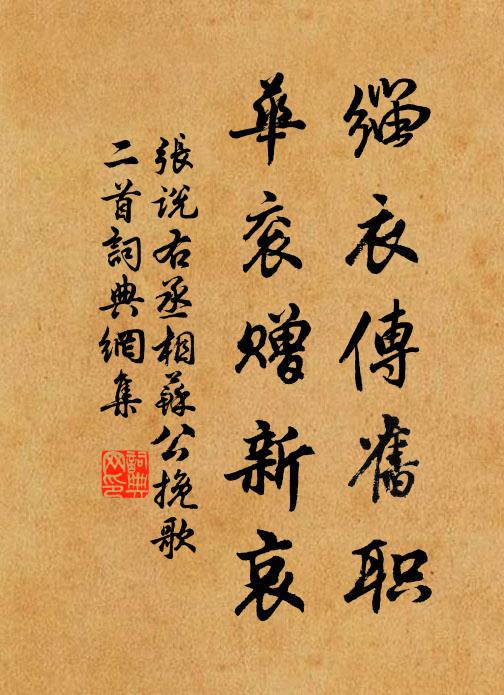 缁衣傳舊职
華衮贈新哀
張説右丞相蘇公挽歌
二首詞典網集
詞典
网印